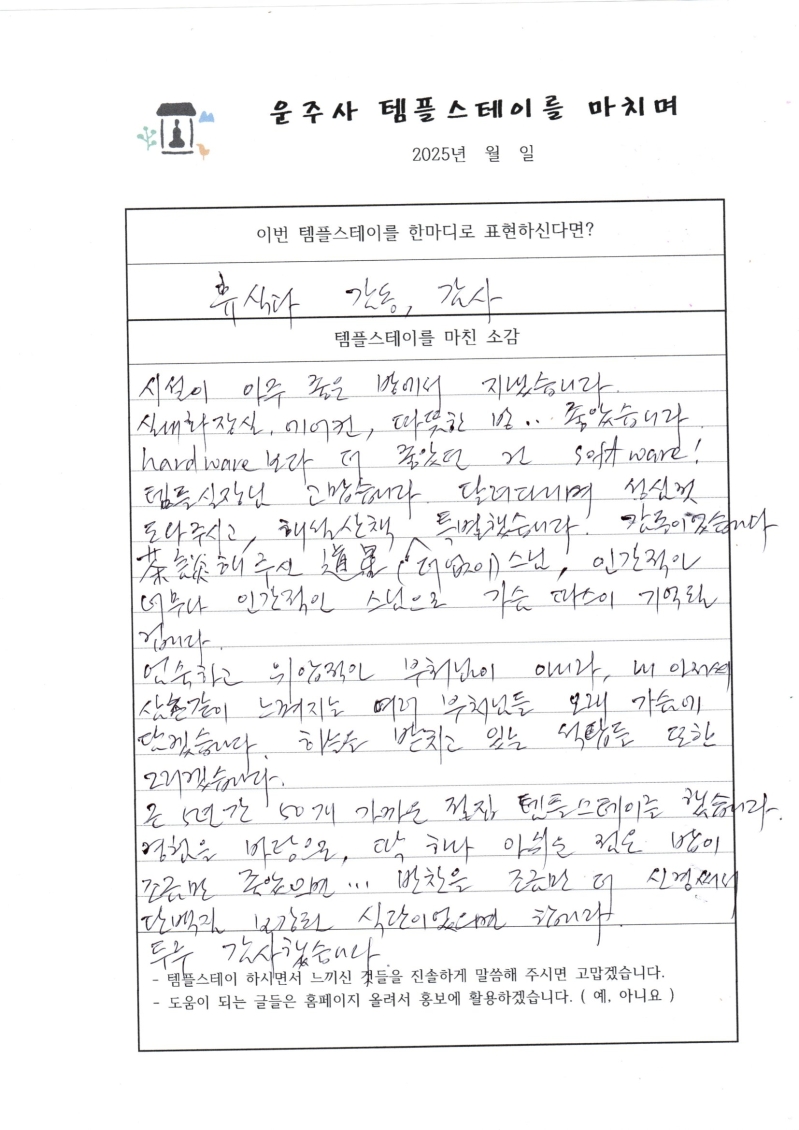 운주사 템플스테이를 마치며
2025년 월 일
이번 템플스테이를 한마디로 표현하신다면?
휴식다 감동, 감사
템플스테이를 마친 소감
시설이 아주 좋은 방에서 지냈습니다.
실내화장실, 에어컨, 따뜻한 방.. 좋았습니다.
hardware보다 더 좋았던 건 software!
템플실장님 고맙습니다. 달려다니며 성심껏
도와주시고, 해설산책 특별했습니다. 감동이었습니다
茶談해주신 道 (더없이) 스님, 인간적인
너무나 인간적인 스님으로 가슴 따스이 기억될
겁니다.
엄숙하고 위압적인 부처님이 아니라, 내 아저씨
삼촌같이 느껴지는 여러 부처님들 오래 가슴에
담겠습니다. 하늘을 받치고 있는 석탑들 또한
그리겠습니다.
근 5년간 50개 가까운 절집 템플스테이를 했습니다.
경험을 바탕으로, 딱 하나 아쉬운 점은 밥이
조금만 좋았으면... 반찬을 조금만 더 신경써서
단백질 보강된 식단이었으면 합니다.
두루 감사했습니다.
- 템플스테이 하시면서 느끼신 것들을 진솔하게 말씀해 주시면 고맙겠습니다.
- 도움이 되는 글들은 홈페이지 올려서 홍보에 활용하겠습니다. ( 예, 아니요 )